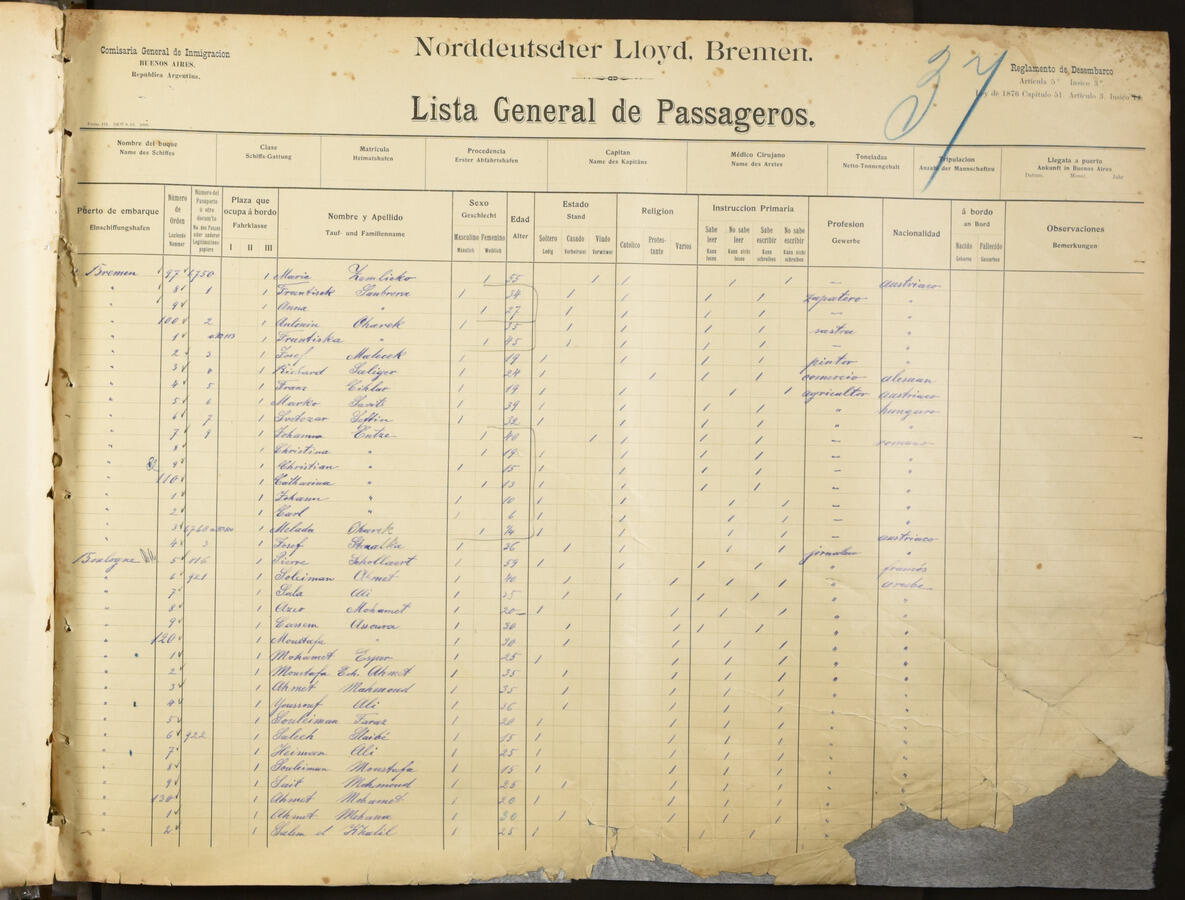 Comisaria General de Inmigracion
BUENOS AIRES.
Republica Argentina.
Norddeutscher Lloyd, Bremen.
Lista General de Passageros.
37
Reglamento de Desembarco
Articulo 5° Inciso 3°
Ley de 1876 Capitulo 51 Articulo 3. Inciso
Nombre del buque Clase Matrícula Procedencia Capitan Médico Cirujano Toneladas Tripulacion Llegata a puerto
Name des Schiffes Schiffs-Gattung Heimatshafen Erster Abfahrtshafen Name des Kapitäns Name des Arztes Netto-Tonnengehalt Anzahl der Mannschaften Ankunft in Buenos Aires
Datum. Monat. Jahr
Puerto de embarque Número de Orden Plaza que ocupa á bordo Nombre y Apellido Sexo Edad Estado Religion Instruccion Primaria Profesion Nacionalidad á bordo Observaciones
Einschiffungshafen Laufende Nummer Fahrklasse Tauf- und Familienname Geschlecht Alter Stand Gewerbe an Bord Bemerkungen
I II III Masculino Femenino Soltero Casado Viudo Catolico Protestante Varios Sabe leer No sabe leer Sabe escribir No sabe escribir Nacido Fallecido
Männlich Weiblich Ledig Verheiratet Verwitwet Kann lesen Kann nicht lesen Kann schreiben Kann nicht schreiben Geboren Gestorben
Bremen 97 6750 1 Maria Zemlicko 1 55 1 1 1 1 austriaco
" 8 1 1 Frantisek 1 34 1 1 1 1 zapatero "
" 9 1 Anna " 1 27 1 1 1 1 – "
" 100 2 1 Antonin Charek 1 35 1 1 1 1 sastre "
" 1 1 Frantiska " 1 45 1 1 1 1 – "
" 2 3 1 Josef Malecek 1 19 1 1 1 1 pintor "
" 3 4 1 Richard Saliger 1 24 1 1 1 1 comercio aleman
" 4 5 1 Franz 1 19 1 1 1 1 agricultor austriaco
" 5 6 1 Marko 1 39 1 1 1 1 " hungaro
" 6 7 1 Svetozar 1 32 1 1 1 1 " "
" 7 9 1 Johanna Entze 1 40 1 1 1 1 –
" 8 1 Christina " 1 19 1 1 1 1 – "
" 9 1 Christian " 1 15 1 1 1 1 – "
" 110 1 Catharina " 1 13 1 1 1 1 – "
" 1 1 Johann " 1 10 1 1 1 1 – "
" 2 1 Carl " 1 6 1 1 1 1 – "
" 3 1 Melada Charek 1 1 1 1 1 – austriaco
" 4 3 1 Josef 1 26 1 1 1 1 jornalero "
Boulogne 5 916 1 Pierre Schollaert 1 59 1 1 1 1 " francés
" 6 921 1 Soleiman Ahmet 1 40 1 1 1 1 " arabe
" 7 1 Sala Ali 1 25 1 1 1 1 " "
" 8 1 Mohamet 1 20 1 1 1 1 " "
" 9 1 Cassem Assoura 1 30 1 1 1 1 " "
" 120 1 Moustafa " 1 30 1 1 1 1 " "
" 1 1 Mohamet 1 25 1 1 1 1 " "
" 2 1 Moustafa Ahmet 1 35 1 1 1 1 " "
" 3 1 Ahmet Mahmoud 1 35 1 1 1 1 " "
" 4 1 Youssouf Ali 1 36 1 1 1 1 " "
" 5 1 Souleiman Faraz 1 20 1 1 1 1 " "
" 6 922 1 Salech 1 15 1 1 1 1 " "
" 7 1 Heiman Ali 1 25 1 1 1 1 " "
" 8 1 Souleiman Moustafa 1 15 1 1 1 1 " "
" 9 1 Sait Mohmoud 1 25 1 1 1 1 " "
" 130 1 Ahmet Mohamet 1 20 1 1 1 1 " "
" 1 1 Ahmet Mehana 1 30 1 1 1 1 "
" 2 1 Salem el Khalil 1 25 1 1 1